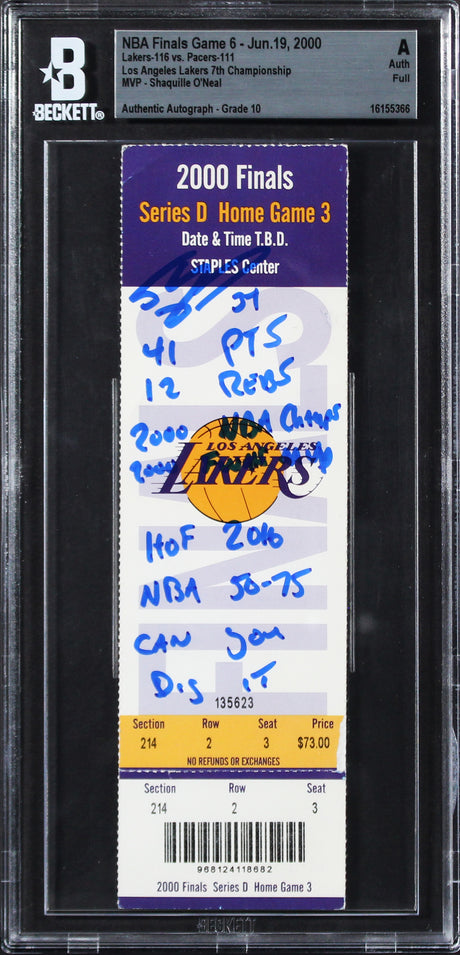 NBA Finals Game 6 - Jun.19, 2000
Lakers-116 vs. Pacers-111
Los Angeles Lakers 7th Championship
MVP - Shaquille O'Neal
Authentic Autograph - Grade 10
A
Auth
Full
16155366
B
BECKETT®
2000 Finals
Series D Home Game 3
Date & Time T.B.D.
STAPLES Center
FINALS
34
41 PTS
12 REBS
2000 NBA Champs
2000 Finals MVP
LOS ANGELES
LAKERS
HoF 2016
NBA 50-75
CAN you
Dig iT
135623
Section Row Seat Price
214 2 3 $73.00
NO REFUNDS OR EXCHANGES
Section Row Seat
214 2 3
968124118682
2000 Finals Series D Home Game 3
BECKETT